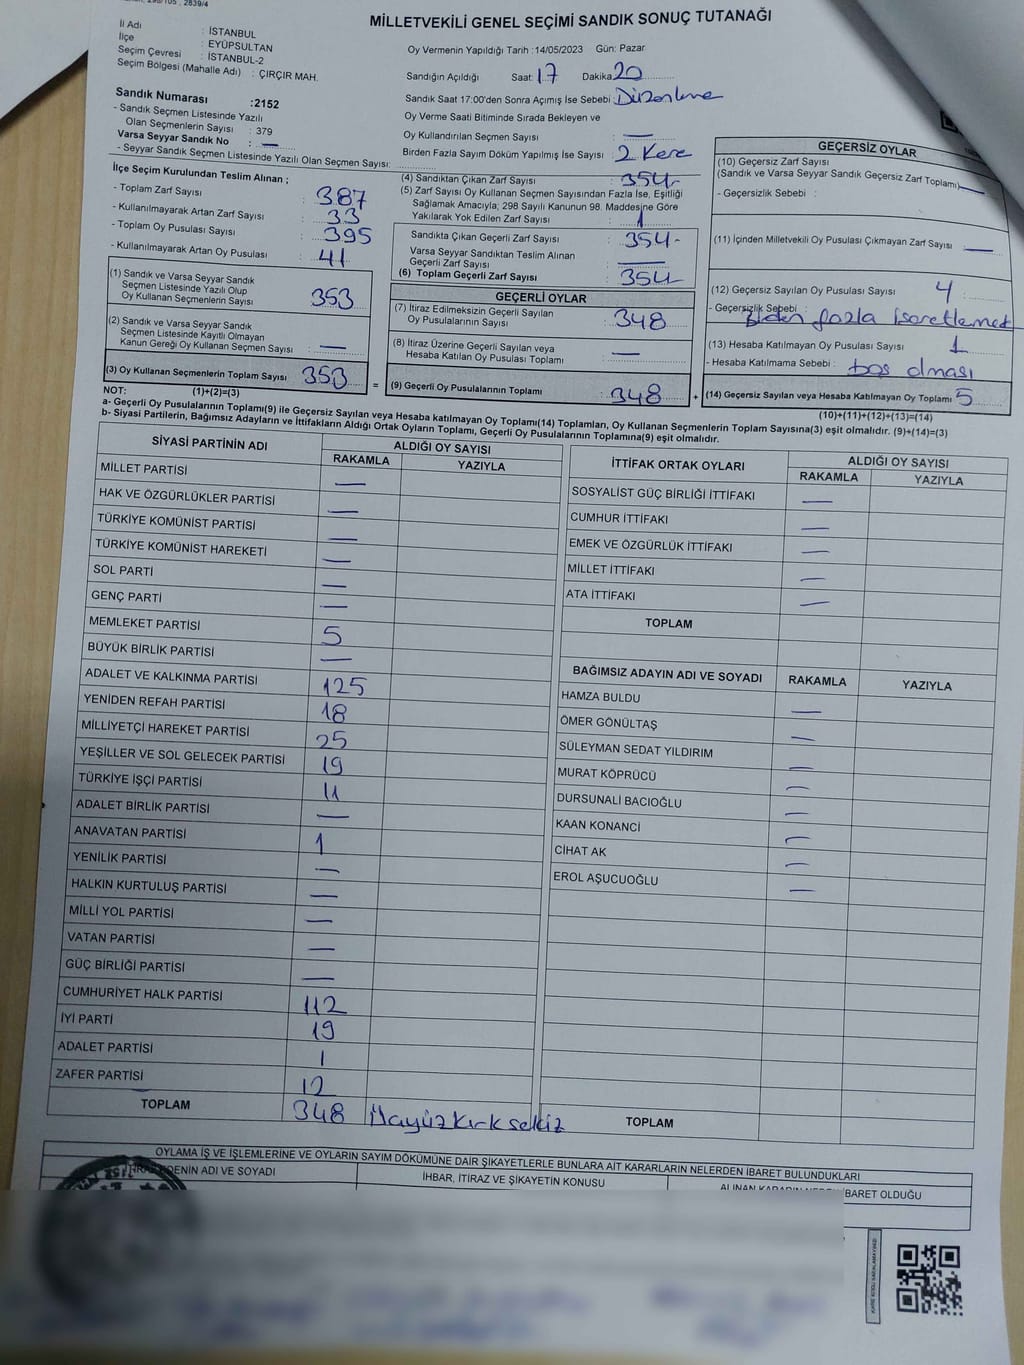 298/105 , 2839/4
MİLLETVEKİLİ GENEL SEÇİMİ SANDIK SONUÇ TUTANAĞI
İl Adı : İSTANBUL
İlçe : EYÜPSULTAN
Seçim Çevresi : İSTANBUL-2
Seçim Bölgesi (Mahalle Adı) : ÇIRÇIR MAH.
Sandık Numarası :2152
- Sandık Seçmen Listesinde Yazılı
Olan Seçmenlerin Sayısı : 379
Varsa Seyyar Sandık No : —
- Seyyar Sandık Seçmen Listesinde Yazılı Olan Seçmen Sayısı:
Oy Vermenin Yapıldığı Tarih :14/05/2023 Gün: Pazar
Sandığın Açıldığı Saat: 17 Dakika 20
Sandık Saat 17:00'den Sonra Açımış İse Sebebi : Düzenleme
Oy Verme Saati Bitiminde Sırada Bekleyen ve
Oy Kullandırılan Seçmen Sayısı : —
Birden Fazla Sayım Döküm Yapılmış İse Sayısı : 2 Kere
İlçe Seçim Kurulundan Teslim Alınan ;
- Toplam Zarf Sayısı : 387
- Kullanılmayarak Artan Zarf Sayısı : 33
- Toplam Oy Pusulası Sayısı : 395
- Kullanılmayarak Artan Oy Pusulası : 41
(1) Sandık ve Varsa Seyyar Sandık
Seçmen Listesinde Yazılı Olup
Oy Kullanan Seçmenlerin Sayısı : 353
(2) Sandık ve Varsa Seyyar Sandık
Seçmen Listesinde Kayıtlı Olmayan
Kanun Gereği Oy Kullanan Seçmen Sayısı : —
(3) Oy Kullanan Seçmenlerin Toplam Sayısı 353 =
(1)+(2)=(3)
(4) Sandıktan Çıkan Zarf Sayısı : 354-
(5) Zarf Sayısı Oy Kullanan Seçmen Sayısından Fazla İse, Eşitliği
Sağlamak Amacıyla; 298 Sayılı Kanunun 98. Maddesine Göre
Yakılarak Yok Edilen Zarf Sayısı : 1
Sandıkta Çıkan Geçerli Zarf Sayısı : 354-
Varsa Seyyar Sandıktan Teslim Alınan
Geçerli Zarf Sayısı : —
(6) Toplam Geçerli Zarf Sayısı : 354-
GEÇERLİ OYLAR
(7) İtiraz Edilmeksizin Geçerli Sayılan
Oy Pusulalarının Sayısı : 348
(8) İtiraz Üzerine Geçerli Sayılan veya
Hesaba Katılan Oy Pusulası Toplamı : —
(9) Geçerli Oy Pusulalarının Toplamı : 348 +
GEÇERSİZ OYLAR
(10) Geçersiz Zarf Sayısı
(Sandık ve Varsa Seyyar Sandık Geçersiz Zarf Toplamı) —
- Geçersizlik Sebebi :
(11) İçinden Milletvekili Oy Pusulası Çıkmayan Zarf Sayısı —
(12) Geçersiz Sayılan Oy Pusulası Sayısı : 4
- Geçersizlik Sebebi : fazla
(13) Hesaba Katılmayan Oy Pusulası Sayısı : 1
- Hesaba Katılmama Sebebi : boş olması
(14) Geçersiz Sayılan veya Hesaba Katılmayan Oy Toplamı 5
(10)+(11)+(12)+(13)=(14)
NOT:
a- Geçerli Oy Pusulalarının Toplamı(9) ile Geçersiz Sayılan veya Hesaba katılmayan Oy Toplamı(14) Toplamları, Oy Kullanan Seçmenlerin Toplam Sayısına(3) eşit olmalıdır. (9)+(14)=(3)
b- Siyasi Partilerin, Bağımsız Adayların ve İttifakların Aldığı Ortak Oyların Toplamı, Geçerli Oy Pusulalarının Toplamına(9) eşit olmalıdır.
SİYASİ PARTİNİN ADI ALDIĞI OY SAYISI
RAKAMLA YAZIYLA
MİLLET PARTİSİ —
HAK VE ÖZGÜRLÜKLER PARTİSİ —
TÜRKİYE KOMÜNİST PARTİSİ —
TÜRKİYE KOMÜNİST HAREKETİ —
SOL PARTİ —
GENÇ PARTİ —
MEMLEKET PARTİSİ 5
BÜYÜK BİRLİK PARTİSİ —
ADALET VE KALKINMA PARTİSİ 125
YENİDEN REFAH PARTİSİ 18
MİLLİYETÇİ HAREKET PARTİSİ 25
YEŞİLLER VE SOL GELECEK PARTİSİ 19
TÜRKİYE İŞÇİ PARTİSİ 11
ADALET BİRLİK PARTİSİ —
ANAVATAN PARTİSİ 1
YENİLİK PARTİSİ —
HALKIN KURTULUŞ PARTİSİ —
MİLLİ YOL PARTİSİ —
VATAN PARTİSİ —
GÜÇ BİRLİĞİ PARTİSİ —
CUMHURİYET HALK PARTİSİ 112
İYİ PARTİ 19
ADALET PARTİSİ 1
ZAFER PARTİSİ 12
TOPLAM 348 üçyüzkırksekiz
İTTİFAK ORTAK OYLARI ALDIĞI OY SAYISI
RAKAMLA YAZIYLA
SOSYALİST GÜÇ BİRLİĞİ İTTİFAKI —
CUMHUR İTTİFAKI —
EMEK VE ÖZGÜRLÜK İTTİFAKI —
MİLLET İTTİFAKI —
ATA İTTİFAKI —
TOPLAM
BAĞIMSIZ ADAYIN ADI VE SOYADI RAKAMLA YAZIYLA
HAMZA BULDU —
ÖMER GÖNÜLTAŞ —
SÜLEYMAN SEDAT YILDIRIM —
MURAT KÖPRÜCÜ —
DURSUNALİ BACIOĞLU —
KAAN KONANCİ —
CİHAT AK —
EROL AŞUCUOĞLU —
TOPLAM
OYLAMA İŞ VE İŞLEMLERİNE VE OYLARIN SAYIM DÖKÜMÜNE DAİR ŞİKAYETLERLE BUNLARA AİT KARARLARIN NELERDEN İBARET BULUNDUKLARI
ADI VE SOYADI
İHBAR, İTİRAZ VE ŞİKAYETİN KONUSU
İBARET OLDUĞU